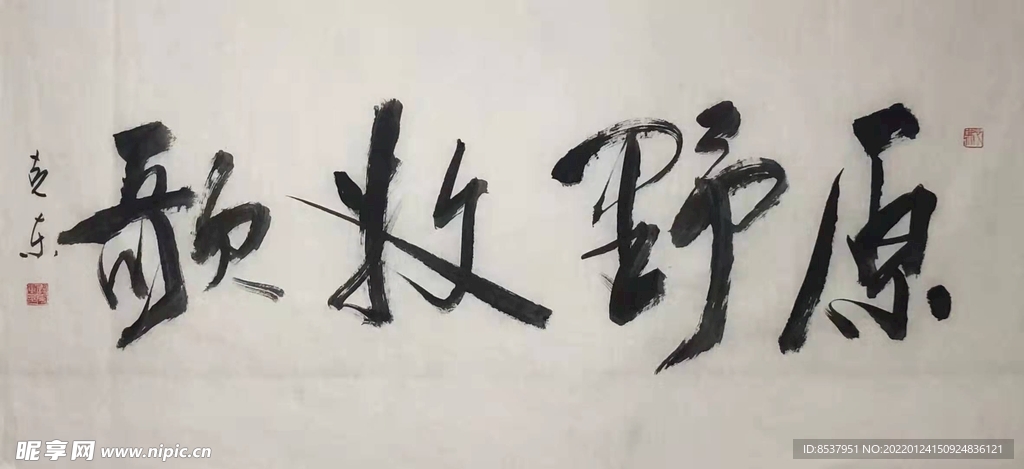 原野牧歌
昵享网 www.nipic.cn
ID:8537951 NO:20220124150924836121